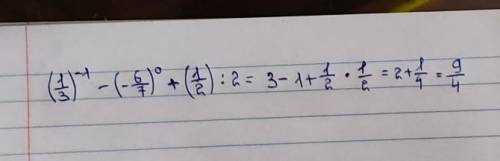 (1/3)⁻¹ − (−6/7)⁰ + (1/2) : 2 = 3 − 1 + 1/2 · 1/2 = 2 + 1/4 = 9/4